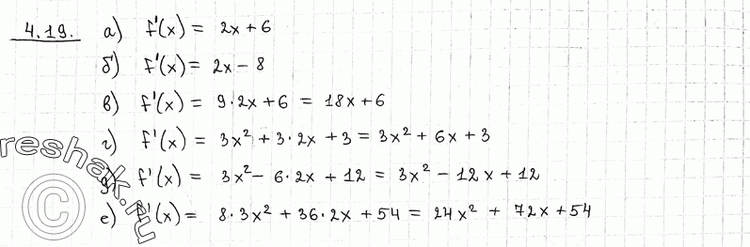 4.19. а) f'(x) = 2x + 6
б) f'(x) = 2x - 8
в) f'(x) = 9·2x + 6 = 18x + 6
г) f'(x) = 3x² + 3·2x + 3 = 3x² + 6x + 3
д) f'(x) = 3x² - 6·2x + 12 = 3x² - 12x + 12
е) f'(x) = 8·3x² + 36·2x + 54 = 24x² + 72x + 54
reshak.ru
©